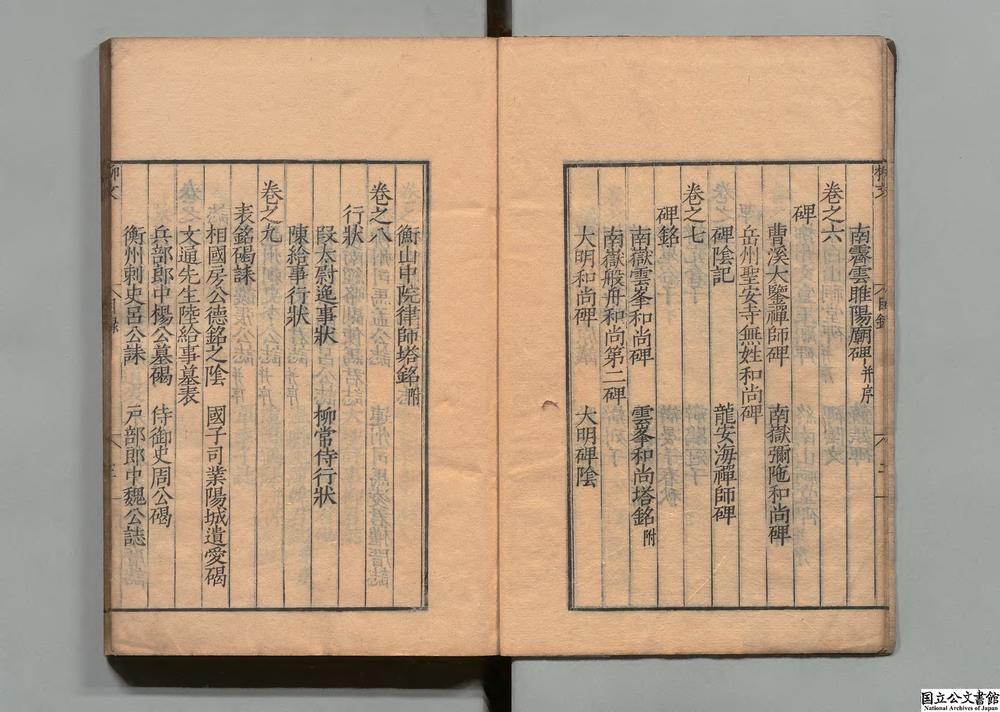 南霽雲睢陽廟碑并序
卷之六
碑
曹溪大鑒禪師碑 南嶽彌陁和尚碑
岳州聖安寺無姓和尚碑
碑陰記 龍安海禪師碑
卷之七
碑銘
南嶽雲峯和尚碑 雲峯和尚塔銘附
南嶽般舟和尚第二碑
大明和尚碑 大明碑陰
衡山中院律師塔銘附
卷之八
行狀
段太尉逸事狀 柳常侍行狀
陳給事行狀
卷之九
表銘碣誄
相國房公德銘之陰 國子司業陽城遺愛碣
文通先生陸給事墓表
兵部郎中楊公墓碣 侍御史周公碣
衡州刺史呂公誄 戶部郎中魏公誌
国立公文書館
National Archives of Japan